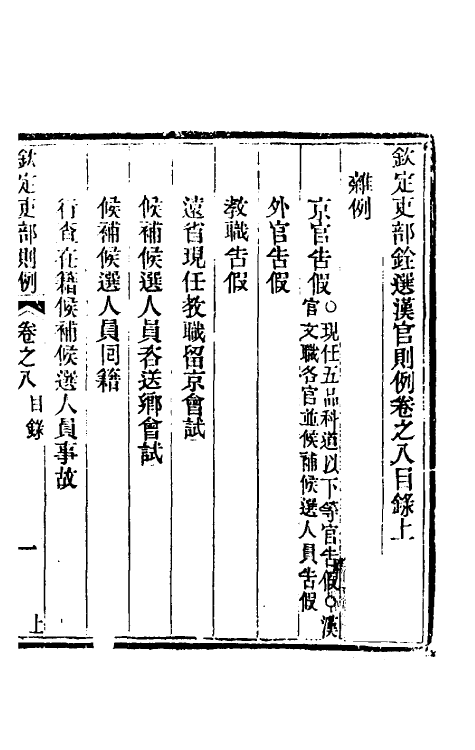 欽定吏部銓選漢官則例卷之八目錄上
雜例
京官告假○現任五品科道以下等官告假○漢
官文職各官並候補候選人員告假
外官告假
教職告假
遠省現任教職留京會試
候補候選人員吞送鄉會試
候補候選人員回籍
行查在籍候補候選人員事故
欽定吏部則例 卷之八目錄 一 上